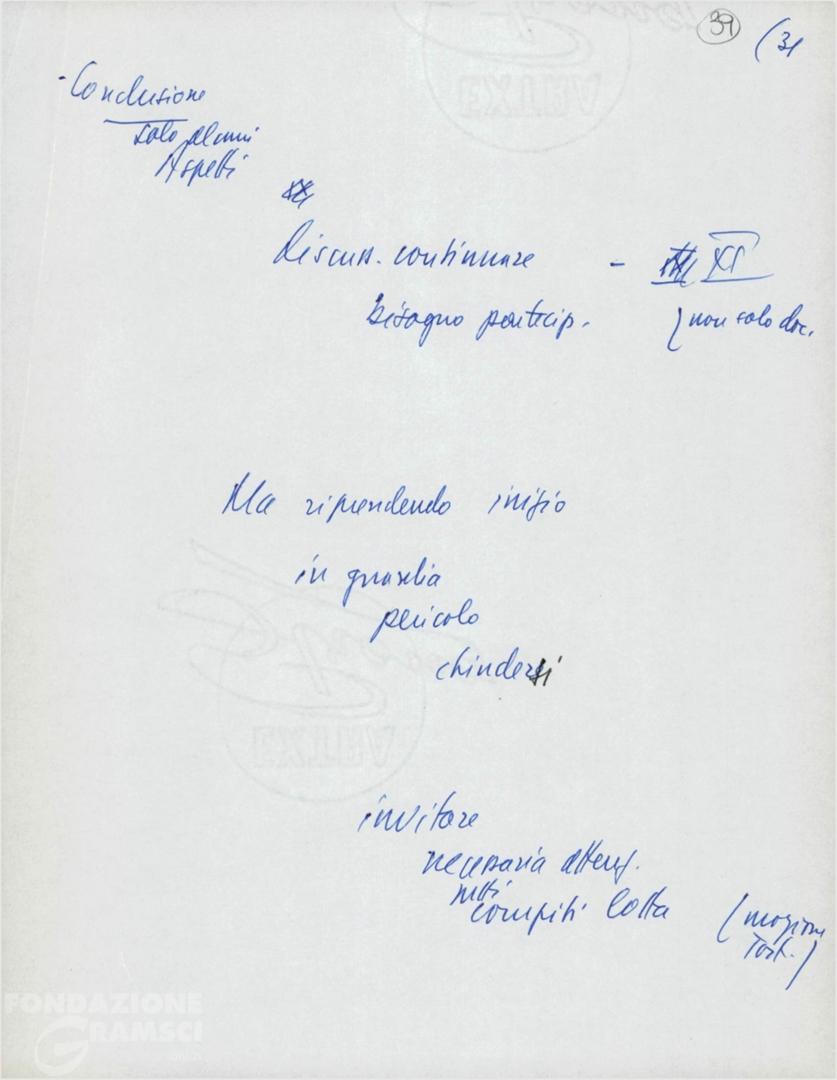 39
(31
- Conclusione
solo alcuni
Aspetti
Discuss. continuare - XI
bisogno partecip. (non solo doc.
Ma riprendendo inizio
in guardia
pericolo
chiudersi
invitare
necessaria attenz.
tutti
compiti lotta (mozione
Tort.)
EXTRA
EXTRA
FONDAZIONE
GRAMSCI